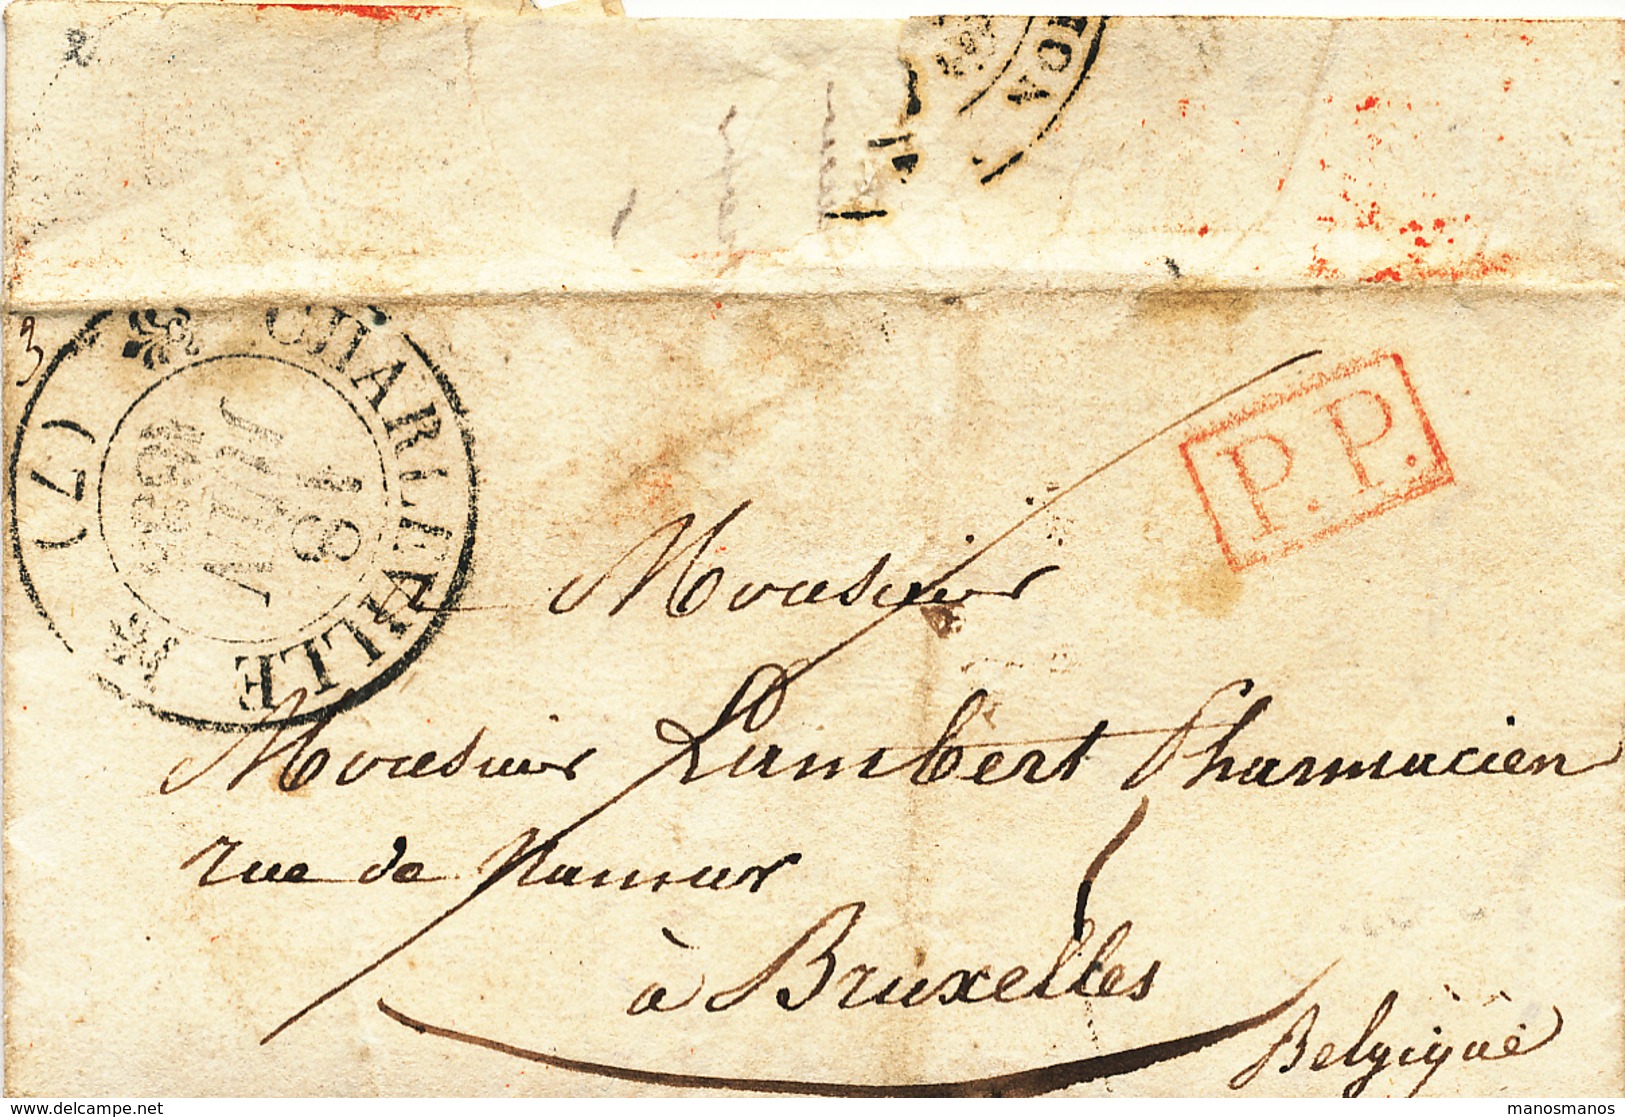 VOI
3
CHARLEVILLE
(7)
18
JUIN
P.P.
Monsieur
Monsieur Lambert Pharmacien
rue de Namur
à Bruxelles
Belgique
www.delcampe.net
manosmanos